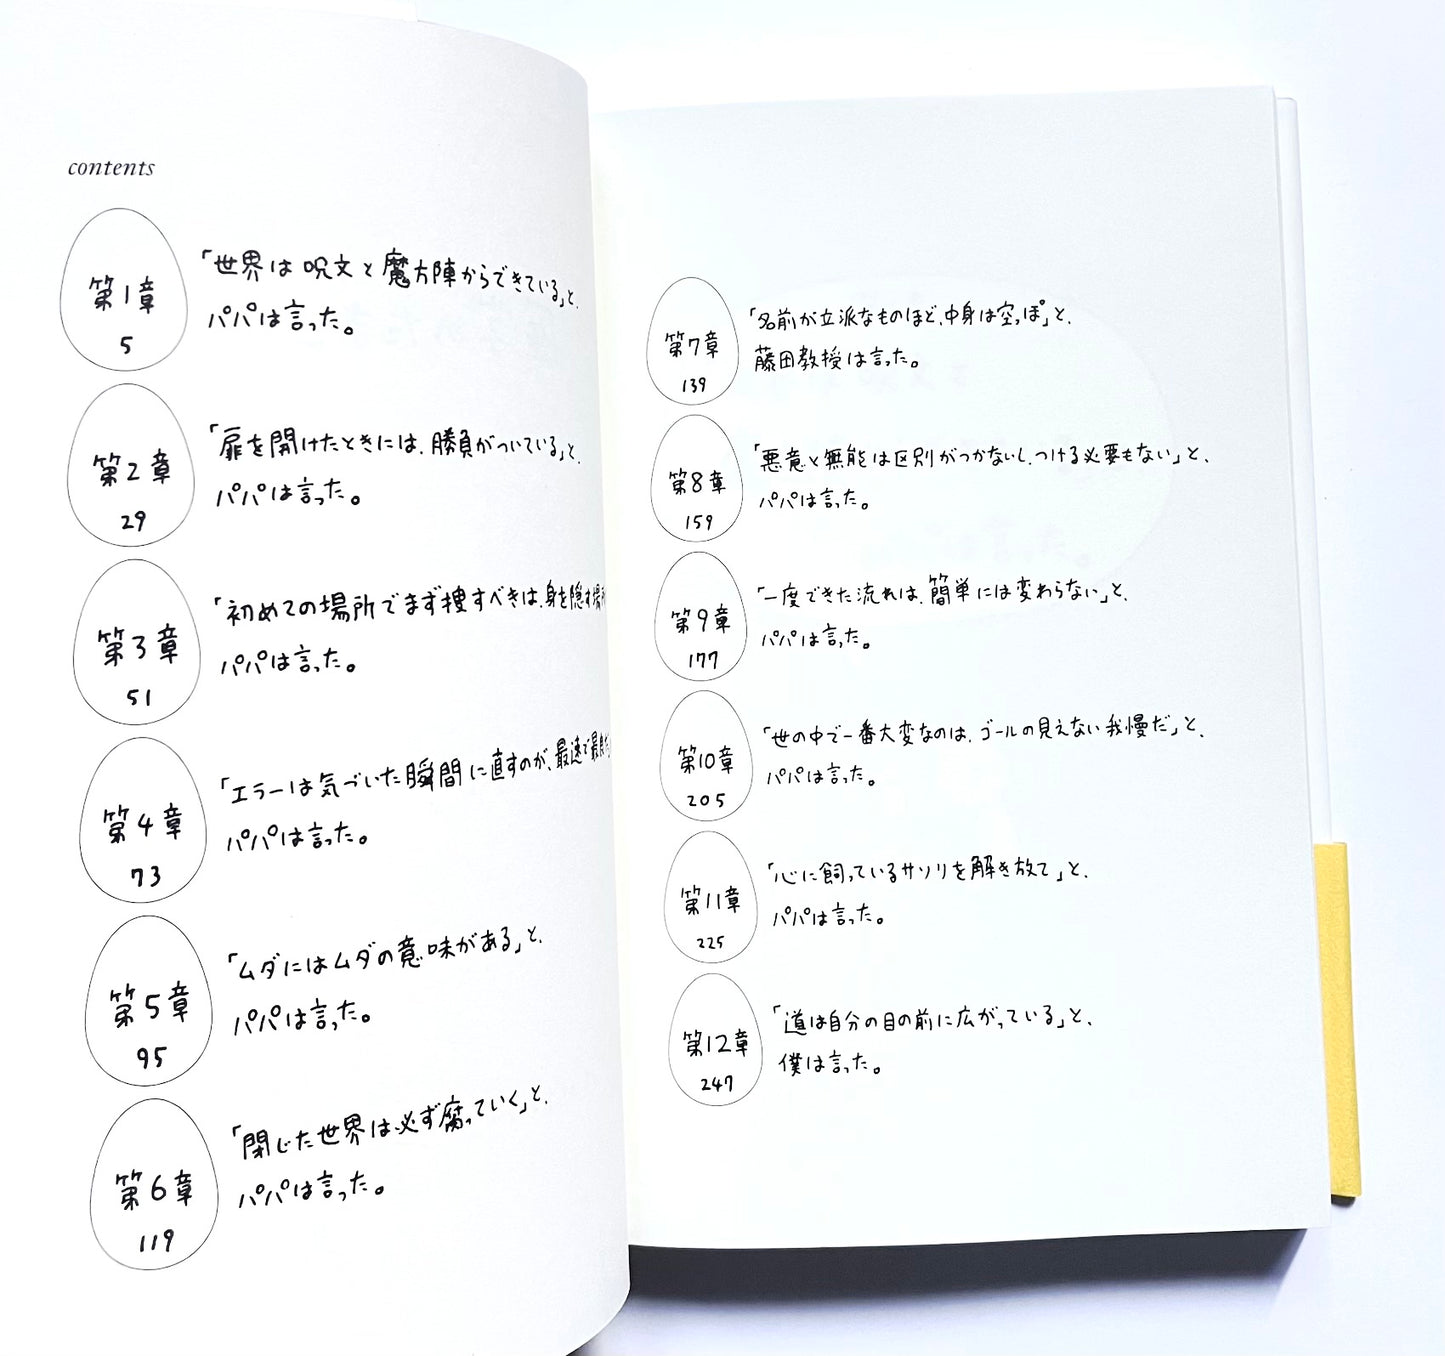 contents
第1章
5
「世界は呪文と魔方陣からできている」と、
パパは言った。
第2章
29
「扉を開けたときには、勝負がついている」と、
パパは言った。
第3章
51
「初めての場所でまず捜すべきは、身を隠す場所
パパは言った。
第4章
73
「エラーは気づいた瞬間に直すのが、最速で最良
パパは言った。
第5章
95
「ムダにはムダの意味がある」と、
パパは言った。
第6章
119
「閉じた世界は必ず腐っていく」と、
パパは言った。
第7章
139
「名前が立派なものほど、中身は空っぽ」と、
藤田教授は言った。
第8章
159
「悪意と無能は区別がつかないし、つける必要もない」と、
パパは言った。
第9章
177
「一度できた流れは、簡単には変わらない」と、
パパは言った。
第10章
205
「世の中で一番大変なのは、ゴールの見えない我慢だ」と、
パパは言った。
第11章
225
「心に飼っているサソリを解き放て」と、
パパは言った。
第12章
247
「道は自分の目の前に広がっている」と、
僕は言った。